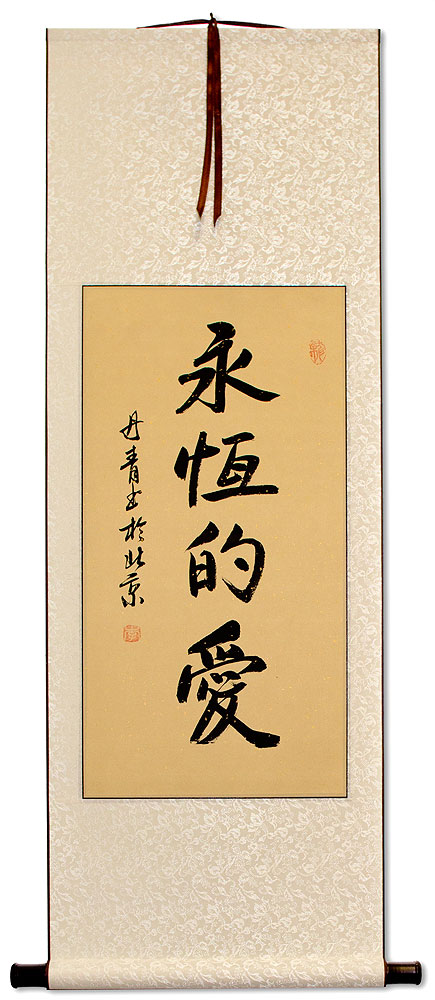 永恆的愛
丹青书於北京